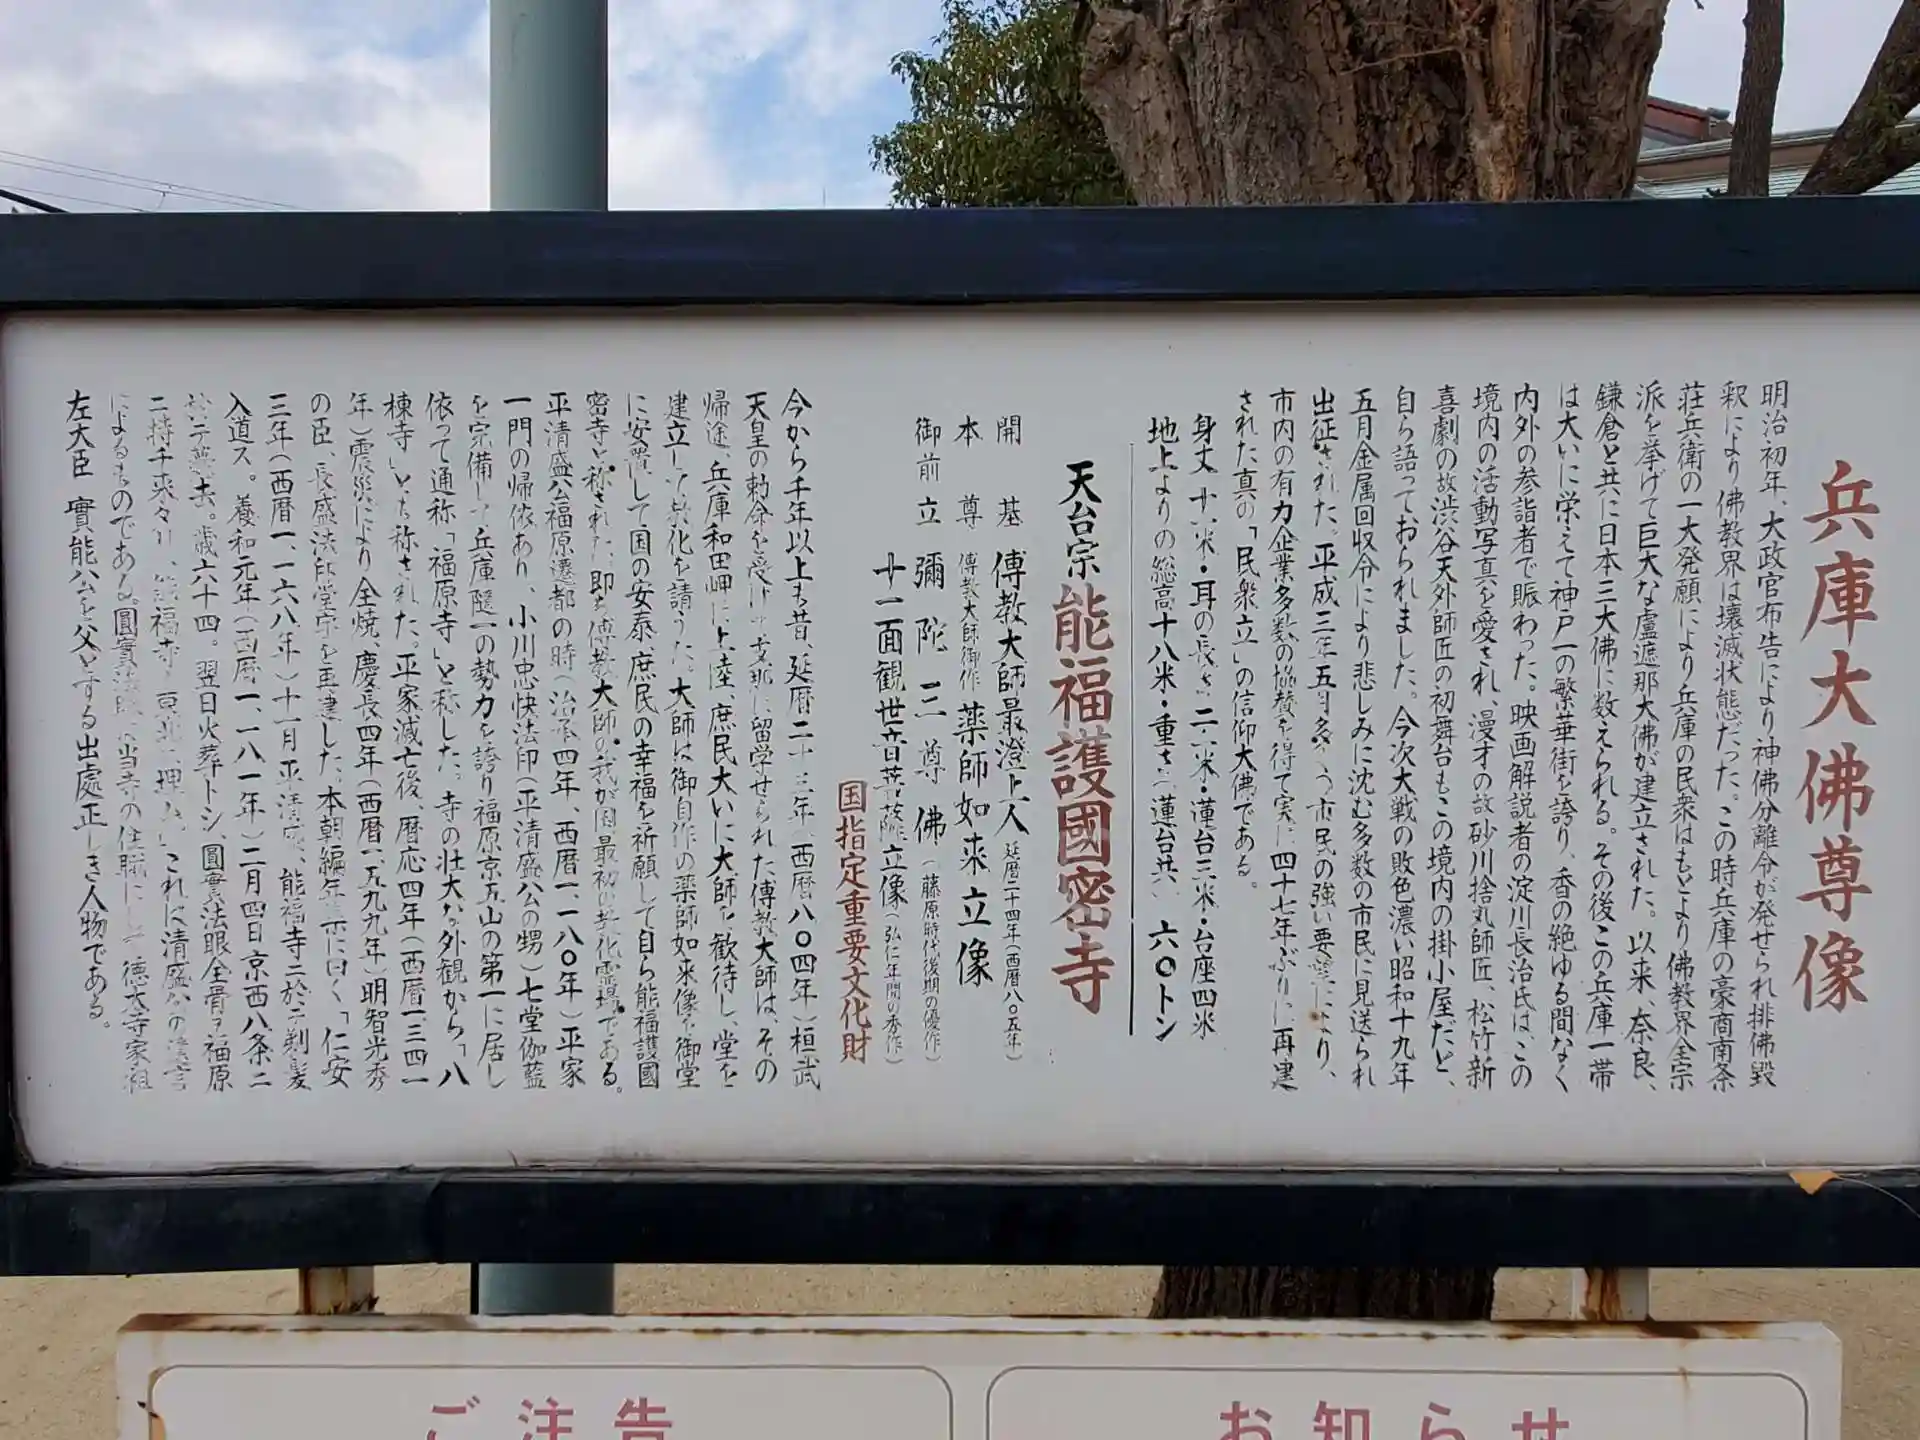 兵庫大佛尊像
明治初年、大政官布告により神佛分離令が発せられ排佛毀
釈により佛教界は壊滅状態だった。この時兵庫の豪商南条
荘兵衛の一大発願により兵庫の民衆はもとより佛教界全宗
派を挙げて巨大な盧遮那大佛が建立された。以来、奈良、
鎌倉と共に日本三大佛に数えられる。その後この兵庫一帯
は大いに栄えて神戸一の繁華街を誇り、香の絶ゆる間なく
内外の参詣者で賑わった。映画解説者の淀川長治氏は、この
境内の活動写真を愛され、漫才の故砂川捨丸師匠、松竹新
喜劇の故渋谷天外師匠の初舞台もこの境内の掛小屋だと、
自ら語っておられました。今次大戦の敗色濃い昭和十九年
五月金属回収令により悲しみに沈む多数の市民に見送られ
出征された。平成三年五月多くの市民の強い要望により、
市内の有力企業多数の協賛を得て実に四十七年ぶりに再建
された真の「民衆立」の信仰大佛である。
身丈十一米・耳の長さ二・一米・蓮台三米・台座四米
地上よりの総高十八米・重さ蓮台共 六〇トン
天台宗 能福護國密寺
開基 傳教大師最澄上人（延暦二十四年（西暦八〇五年）
本尊 傳教大師御作 薬師如来立像
御前立 彌陀三尊佛（藤原時代後期の優作）
十一面観世音菩薩立像（弘仁年間の秀作）
国指定重要文化財
今から千年以上も昔、延暦二十三年（西暦八〇四年）桓武
天皇の勅命を受け支那に留学せられた傳教大師は、その
帰途、兵庫和田岬に上陸、庶民大いに大師を歓待し、堂を
建立して教化を請うた。大師は御自作の薬師如来像を御堂
に安置して国の安泰、庶民の幸福を祈願して自ら能福護國
密寺と称された、即ち傳教大師の我が国最初の教化霊場である。
平清盛公福原遷都の時（治承四年、西暦一、一八〇年）平家
一門の帰依あり、小川忠快法印（平清盛公の甥）七堂伽藍
を完備して兵庫随一の勢力を誇り福原京五山の第一に居し
依って通称「福原寺」と称した。寺の壮大な外観から「八
棟寺」とも称された。平家滅亡後、暦応四年（西暦一、三四一
年）震災により全焼、慶長四年（西暦一、五九九年）明智光秀
の臣、長盛法印堂宇を再建した、本朝編年集に曰く「仁安
三年（西暦一、一六八年）十一月平清盛、能福寺ニ於テ剃髪
入道ス。養和元年（西暦一、一八一年）二月四日京西八条ニ
於テ薨去。歳六十四。翌日火葬トシ、圓實法眼全骨ヲ福原
ニ持チ来タリ、能福寺ノ東北ニ埋ム」これは清盛公の遺言
によるものである。圓實法眼は当寺の住職にして徳大寺家祖
左大臣 實能公を父とする出處正しき人物である。
ご注告
お知らせ